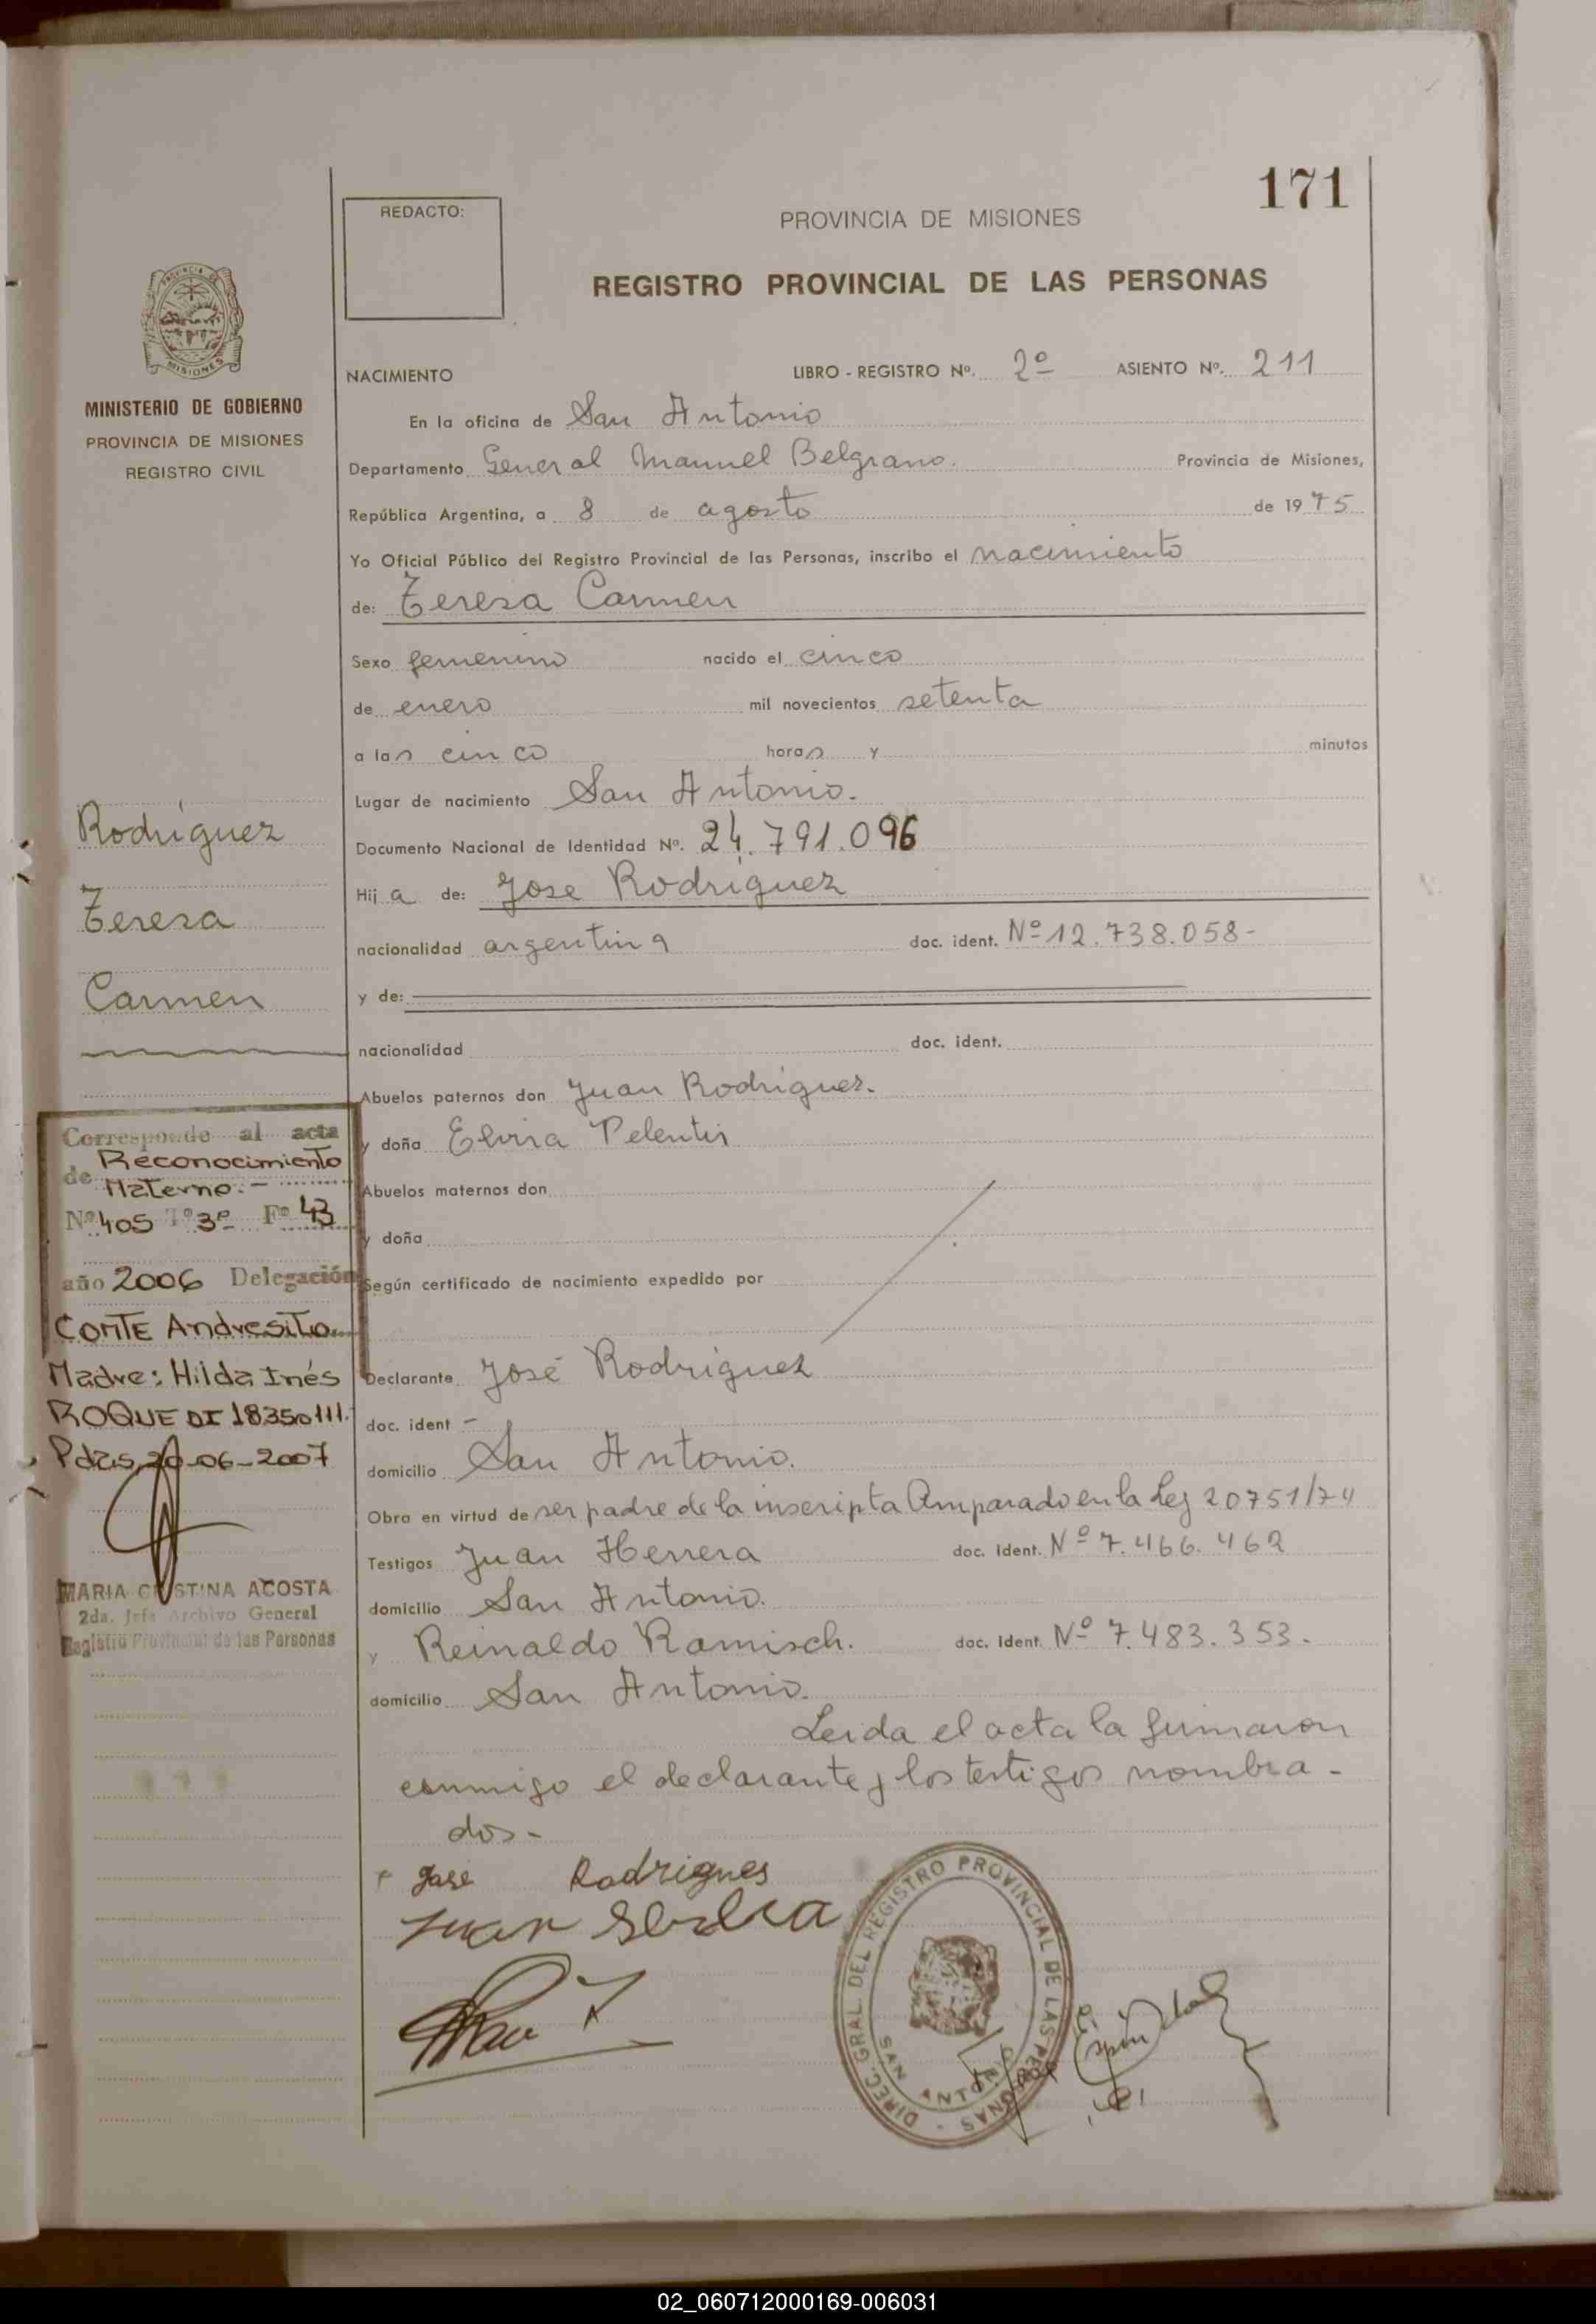 171
REDACTO:
PROVINCIA DE MISIONES
REGISTRO PROVINCIAL DE LAS PERSONAS
MINISTERIO DE GOBIERNO
PROVINCIA DE MISIONES
REGISTRO CIVIL
NACIMIENTO LIBRO - REGISTRO Nº. 2º ASIENTO Nº. 211
En la oficina de San Antonio
Departamento General Manuel Belgrano. Provincia de Misiones,
República Argentina, a 8 de agosto de 1975
Yo Oficial Público del Registro Provincial de las Personas, inscribo el nacimiento
de: Teresa Carmen
Sexo femenino nacido el cinco
de enero mil novecientos setenta
a las cinco horas y minutos
Lugar de nacimiento San Antonio.
Documento Nacional de Identidad Nº. 24.791.096
Hija de: Jose Rodriguez
nacionalidad argentina doc. ident. Nº 12.738.058-
y de:
nacionalidad doc. ident.
Abuelos paternos don Juan Rodriguez.
y doña Elvira Pelentir
Abuelos maternos don
y doña
Según certificado de nacimiento expedido por
Declarante José Rodriguez
doc. ident -
domicilio San Antonio.
Obra en virtud de ser padre de la inscripta Amparado en la Ley 20751/74
Testigos Juan Herrera doc. Ident. Nº 7.466.462
domicilio San Antonio.
y Reinaldo Ramisch. doc. Ident. Nº 7.483.353.
domicilio San Antonio.
Leida el acta la firmaron
conmigo el declarante y los testigos nombra-
dos-
Jose Rodrigues
Juan
DIREC. GRAL. DEL REGISTRO PROVINCIAL DE LAS PERSONAS -
SAN ANTONIO
Rodríguez
Teresa
Carmen
Corresponde al acta
de Reconocimiento
Materno.-
Nº 405 Tº 3º Fº 43
año 2006 Delegación
COMTE Andresito
Madre: Hilda Inés
ROQUE DI 18350111.
Pdas, 20-06-2007
MARIA CRISTINA ACOSTA
2da. Jefe Archivo General
Registro Provincial de las Personas
02_060712000169-006031